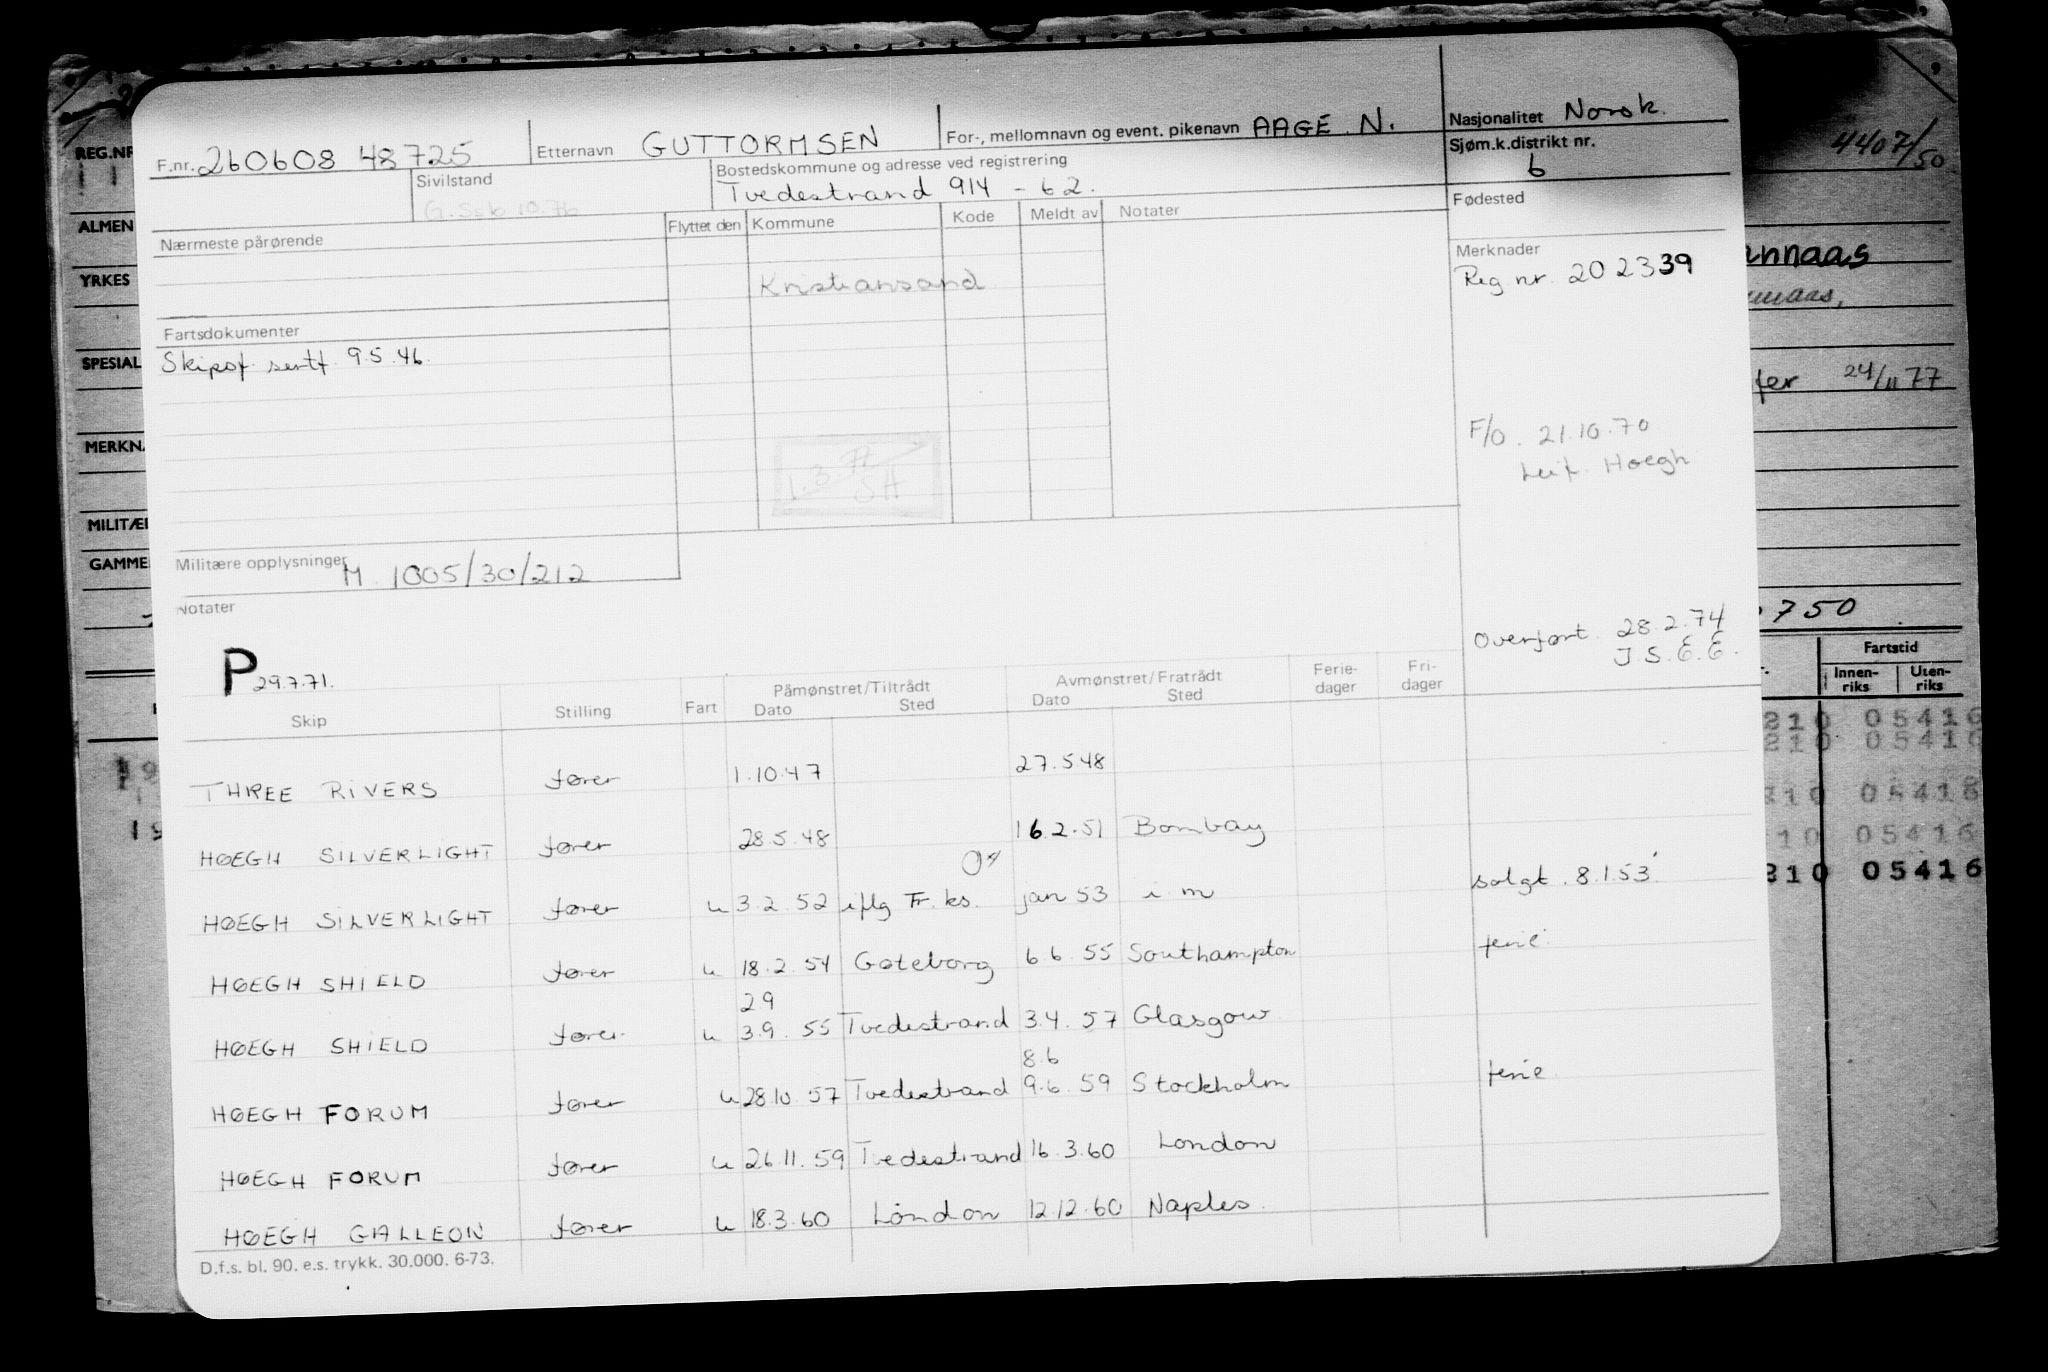 F.nr. 260608 48725
Etternavn GUTTORMSEN
For-, mellomnavn og event. pikenavn AAGE N.
Nasjonalitet Norsk.
Sjøm.k.distrikt nr.
6
Sivilstand
Bostedskommune og adresse ved registrering
Tvedestrand 914 - 62.
Fødested
Nærmeste pårørende
Flyttet den Kommune Kode Meldt av Notater
Kristiansand
Merknader
Reg nr. 202339
Fartsdokumenter
Skipsf sertf. 9.5.46.
F/O. 21.10.70
Leif. Hoegh
1.3.72
SH
Militære opplysninger M. 1005/30/212
Notater
P 29.7.71.
Overført. 28.2.74
J.S.E.E.
Skip Stilling Fart Påmønstret/Tiltrådt Dato Sted Avmønstret/Fratrådt Dato Sted Ferie-dager Fri-dager
THREE RIVERS fører 1.10.47 27.5.48
HØEGH SILVERLIGHT fører 28.5.48 16.2.51 Bombay
HØEGH SILVERLIGHT fører u 3.2.52 iflg Fr. ks. jan 53 i. m solgt. 8.1.53.
HØEGH SHIELD fører u 18.2.54 Gøteborg 6.6.55 Southampton ferie.
29
HØEGH SHIELD fører u 3.9.55 Tvedestrand 3.4.57 Glasgow
8.6
HØEGH FORUM fører u 28.10.57 Tvedestrand 9.6.59 Stockholm ferie.
HØEGH FORUM fører u 26.11.59 Tvedestrand 16.3.60 London
HØEGH GALLEON fører u 18.3.60 London 12.12.60 Naples.
D.f.s. bl. 90. e.s. trykk. 30.000. 6-73.
REG.NR
ALMEN
YRKES
SPESIAL
MERKNA
MILITÆR
GAMME
4407/50
annaas
24/11 77
750
Fartstid
Innen-riks Uten-riks
210 05416
210 05416
210 05416
210 05416
210 05416